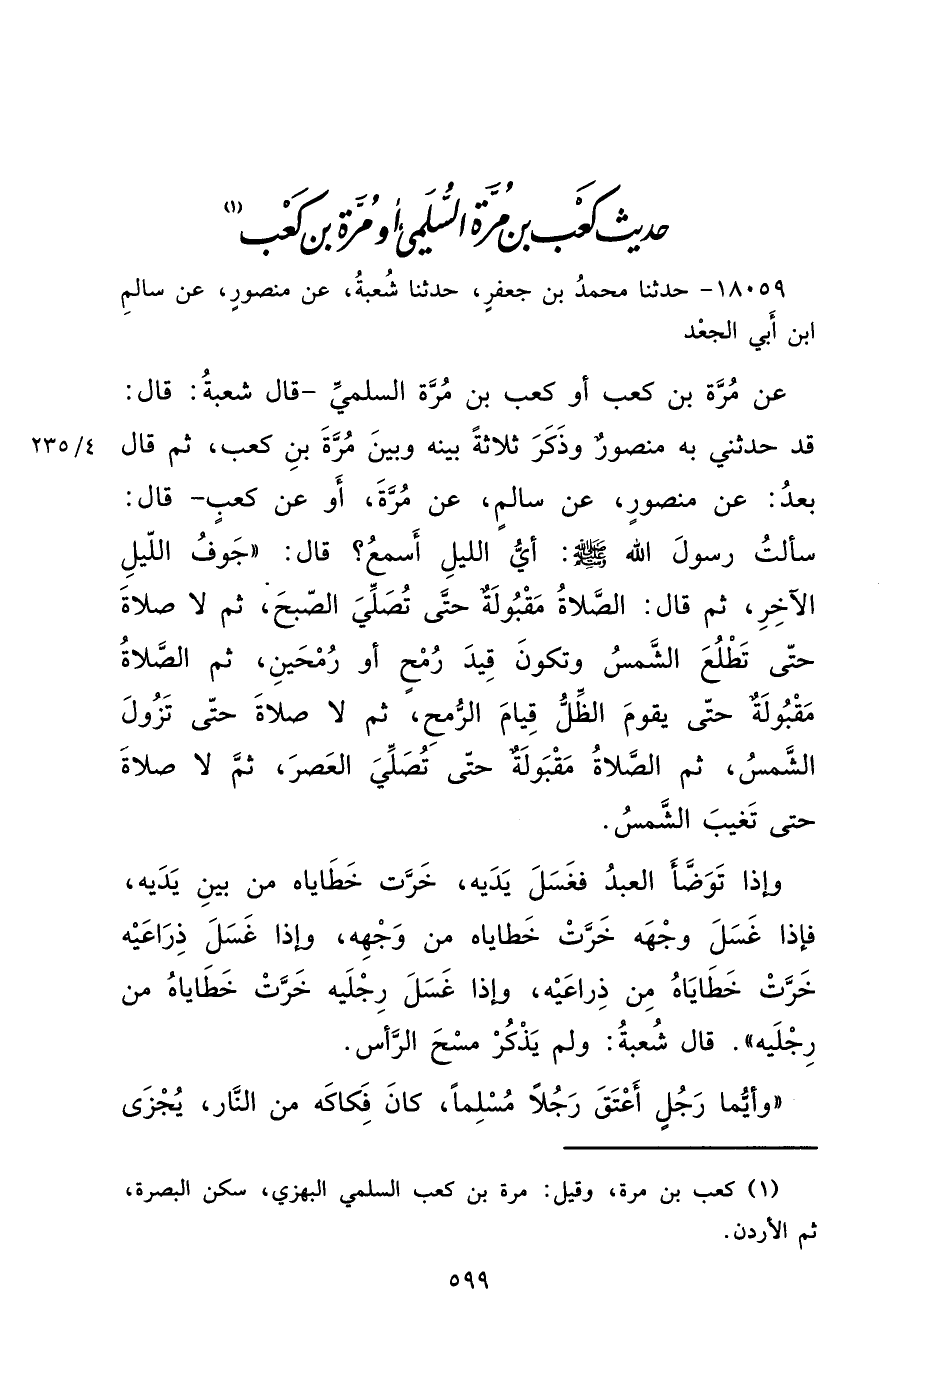 حديث كَعْب بن مُرَّة السُّلَمِيّ أو مُرَّة بن كَعْب (١)
١٨٠٥٩- حدثنا محمدُ بن جعفرٍ، حدثنا شُعبةُ، عن منصورٍ، عن سالمِ
ابن أَبي الجعْد
عن مُرَّة بن كعب أو كعب بن مُرَّة السلميِّ -قال شعبةُ: قال:
قد حدثني به منصورٌ وذَكَرَ ثلاثةً بينه وبينَ مُرَّةَ بنِ كعب، ثم قال ٢٣٥/٤
بعدُ: عن منصورٍ، عن سالمٍ، عن مُرَّةَ، أَو عن كعبٍ- قال:
سألتُ رسولَ الله ﷺ: أيُّ الليلِ أَسمعُ؟ قال: «جَوفُ اللّيلِ
الآخِرِ، ثم قال: الصَّلاةُ مَقْبُولَةٌ حتَّى تُصَلِّيَ الصّبحَ، ثم لا صلاةَ
حتّى تَطْلُعَ الشَّمسُ وتكونَ قِيدَ رُمْحٍ أو رُمْحَينِ، ثم الصَّلاةُ
مَقْبُولَةٌ حتّى يقومَ الظِّلُّ قِيامَ الرُّمحِ، ثم لا صلاةَ حتّى تَزُولَ
الشَّمسُ، ثم الصَّلاةُ مَقْبَولَةٌ حتّى تُصَلِّيَ العَصرَ، ثمَّ لا صلاةَ
حتى تَغيبَ الشَّمسُ.
وإذا تَوَضَّأَ العبدُ فغَسَلَ يَدَيه، خَرَّت خَطَاياه من بينِ يَدَيه،
فإذا غَسَلَ وجْهَه خَرَّتْ خطاياه من وَجْهِه، وإذا غَسَلَ ذِرَاعَيْه
خَرَّتْ خَطَايَاهُ مِن ذِراعَيْه، وإذا غَسَلَ رِجْلَيه خَرَّتْ خَطَاياهُ من
رِجْلَيه». قال شُعبةُ: ولم يَذْكُرْ مسْحَ الرَّأس.
«وأيُّما رَجُلٍ أَعْتَقَ رَجُلاً مُسْلِماً، كانَ فِكاكَه من النَّار، يُجْزَى
(١) كعب بن مرة، وقيل: مرة بن كعب السلمي البهزي، سكن البصرة،
ثم الأردن.
٥٩٩